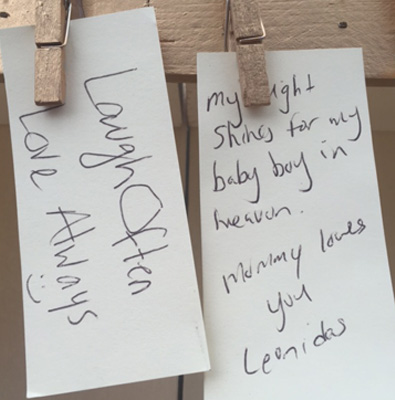 Laugh Often
Love Always
my light
Shines for my
baby boy in
heaven.
Mommy loves
you
Leonidas